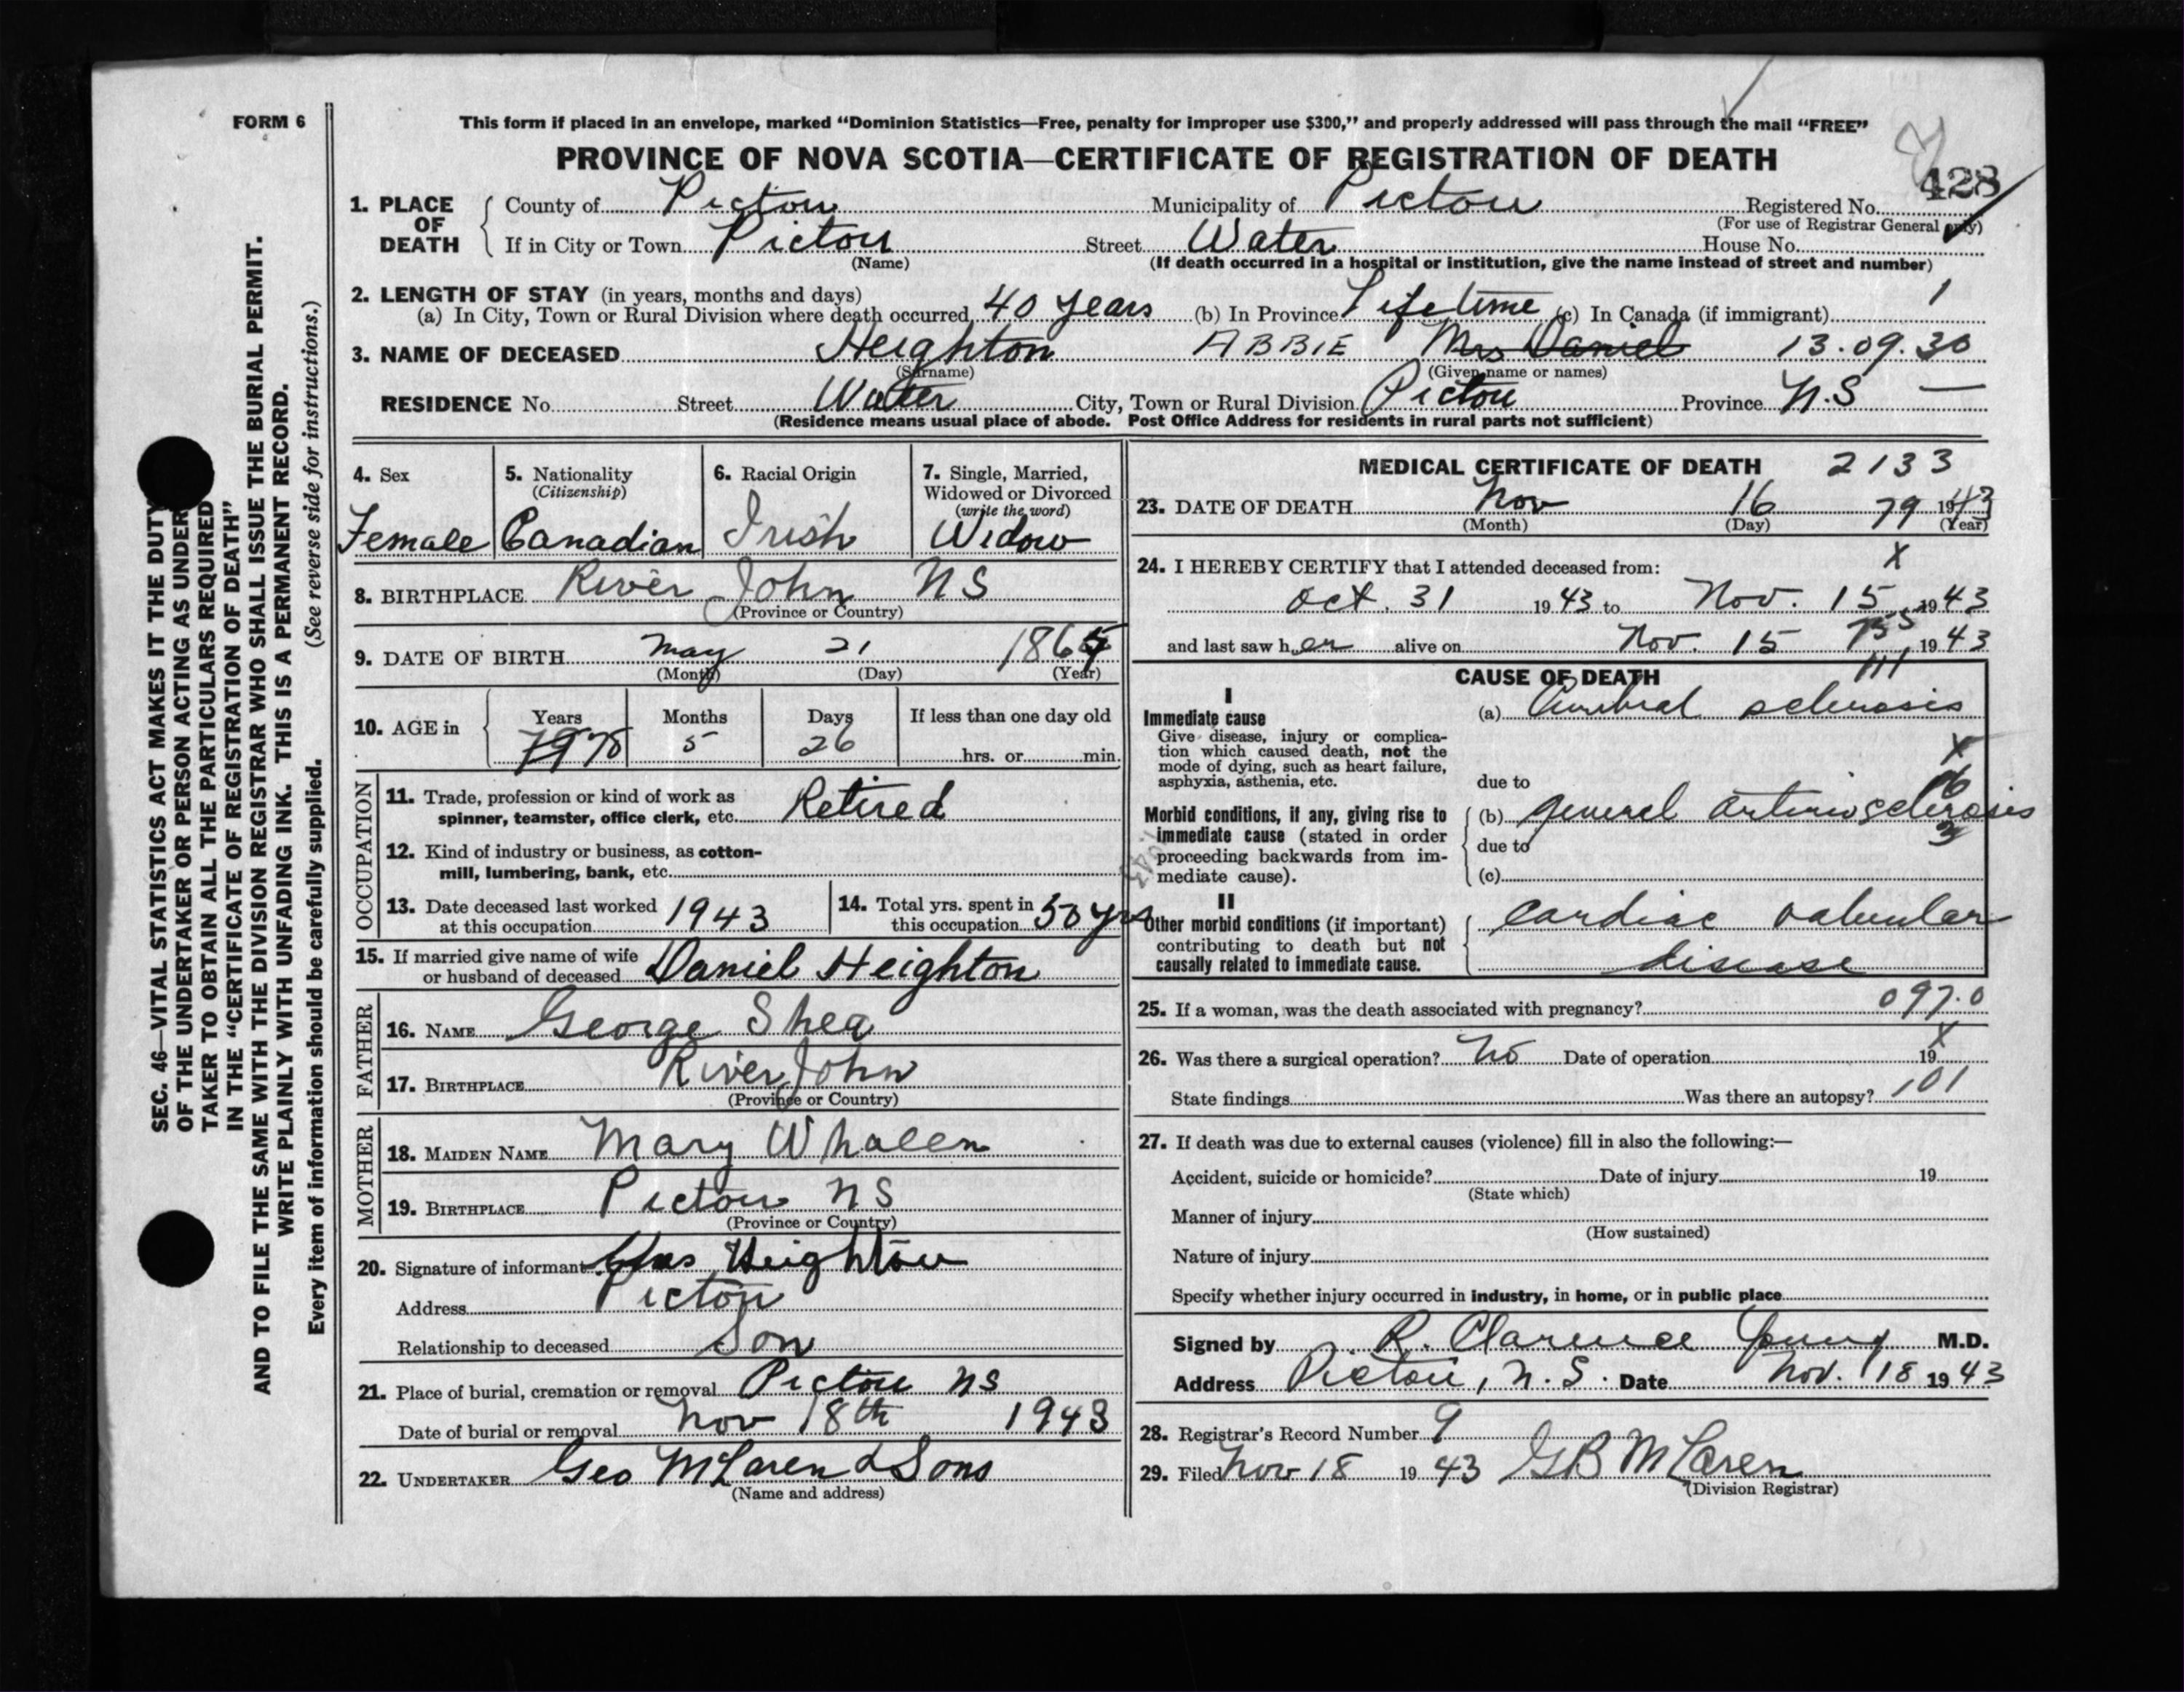 FORM 6
This form if placed in an envelope, marked “Dominion Statistics—Free, penalty for improper use $300,” and properly addressed will pass through the mail “FREE”
PROVINCE OF NOVA SCOTIA—CERTIFICATE OF REGISTRATION OF DEATH
428
1. PLACE OF DEATH
County of Pictou Municipality of Pictou Registered No.
(For use of Registrar General only)
If in City or Town Pictou Street Water House No.
(Name) (If death occurred in a hospital or institution, give the name instead of street and number)
2. LENGTH OF STAY (in years, months and days) 1
(a) In City, Town or Rural Division where death occurred 40 years (b) In Province Lifetime (c) In Canada (if immigrant)
3. NAME OF DECEASED Heighton ABBIE Mrs Daniel 13.09.30
(Surname) (Given name or names)
RESIDENCE No. Street Water City, Town or Rural Division Pictou Province N.S —
(Residence means usual place of abode. Post Office Address for residents in rural parts not sufficient)
4. Sex Female
5. Nationality (Citizenship) Canadian
6. Racial Origin Irish
7. Single, Married, Widowed or Divorced (write the word) Widow
8. BIRTHPLACE River John NS
(Province or Country)
9. DATE OF BIRTH May 21 186
(Month) (Day) (Year)
10. AGE in Years Months Days If less than one day old
79 78 5 26 hrs. or min.
OCCUPATION
11. Trade, profession or kind of work as spinner, teamster, office clerk, etc. Retired
12. Kind of industry or business, as cotton-mill, lumbering, bank, etc.
13. Date deceased last worked at this occupation 1943
14. Total yrs. spent in this occupation 50 yrs
15. If married give name of wife or husband of deceased Daniel Heighton
FATHER
16. NAME George Shea
17. BIRTHPLACE River John
(Province or Country)
MOTHER
18. MAIDEN NAME Mary Whalen
19. BIRTHPLACE Pictou NS
(Province or Country)
20. Signature of informant Chas Heighton
Address Pictou
Relationship to deceased Son
21. Place of burial, cremation or removal Pictou NS
Date of burial or removal Nov 18th 1943
22. UNDERTAKER Geo McLaren & Sons
(Name and address)
MEDICAL CERTIFICATE OF DEATH 2133
23. DATE OF DEATH Nov 16 79 1943
(Month) (Day) (Year)
24. I HEREBY CERTIFY that I attended deceased from: X
Oct. 31 1943 to Nov. 15 1943
and last saw her alive on Nov. 15 1943
CAUSE OF DEATH
I
Immediate cause
Give disease, injury or complication which caused death, not the mode of dying, such as heart failure, asphyxia, asthenia, etc.
(a) Cerebral sclerosis
due to
Morbid conditions, if any, giving rise to immediate cause (stated in order proceeding backwards from immediate cause).
(b) general arteriosclerosis
due to
(c)
II
Other morbid conditions (if important) contributing to death but not causally related to immediate cause.
Cardiac valvular
disease
25. If a woman, was the death associated with pregnancy? 097.0
26. Was there a surgical operation? No Date of operation 19 X
State findings Was there an autopsy? 101
27. If death was due to external causes (violence) fill in also the following:—
Accident, suicide or homicide? Date of injury 19
(State which)
Manner of injury
(How sustained)
Nature of injury
Specify whether injury occurred in industry, in home, or in public place
Signed by R. Clarence Young M.D.
Address Pictou, N.S. Date Nov. 18 1943
28. Registrar's Record Number 9
29. Filed Nov 18 1943 GB McLaren
(Division Registrar)
SEC. 46—VITAL STATISTICS ACT MAKES IT THE DUTY
OF THE UNDERTAKER OR PERSON ACTING AS UNDER
TAKER TO OBTAIN ALL THE PARTICULARS REQUIRED
IN THE “CERTIFICATE OF REGISTRATION OF DEATH”
AND TO FILE THE SAME WITH THE DIVISION REGISTRAR WHO SHALL ISSUE THE BURIAL PERMIT.
WRITE PLAINLY WITH UNFADING INK. THIS IS A PERMANENT RECORD.
Every item of information should be carefully supplied. (See reverse side for instructions.)